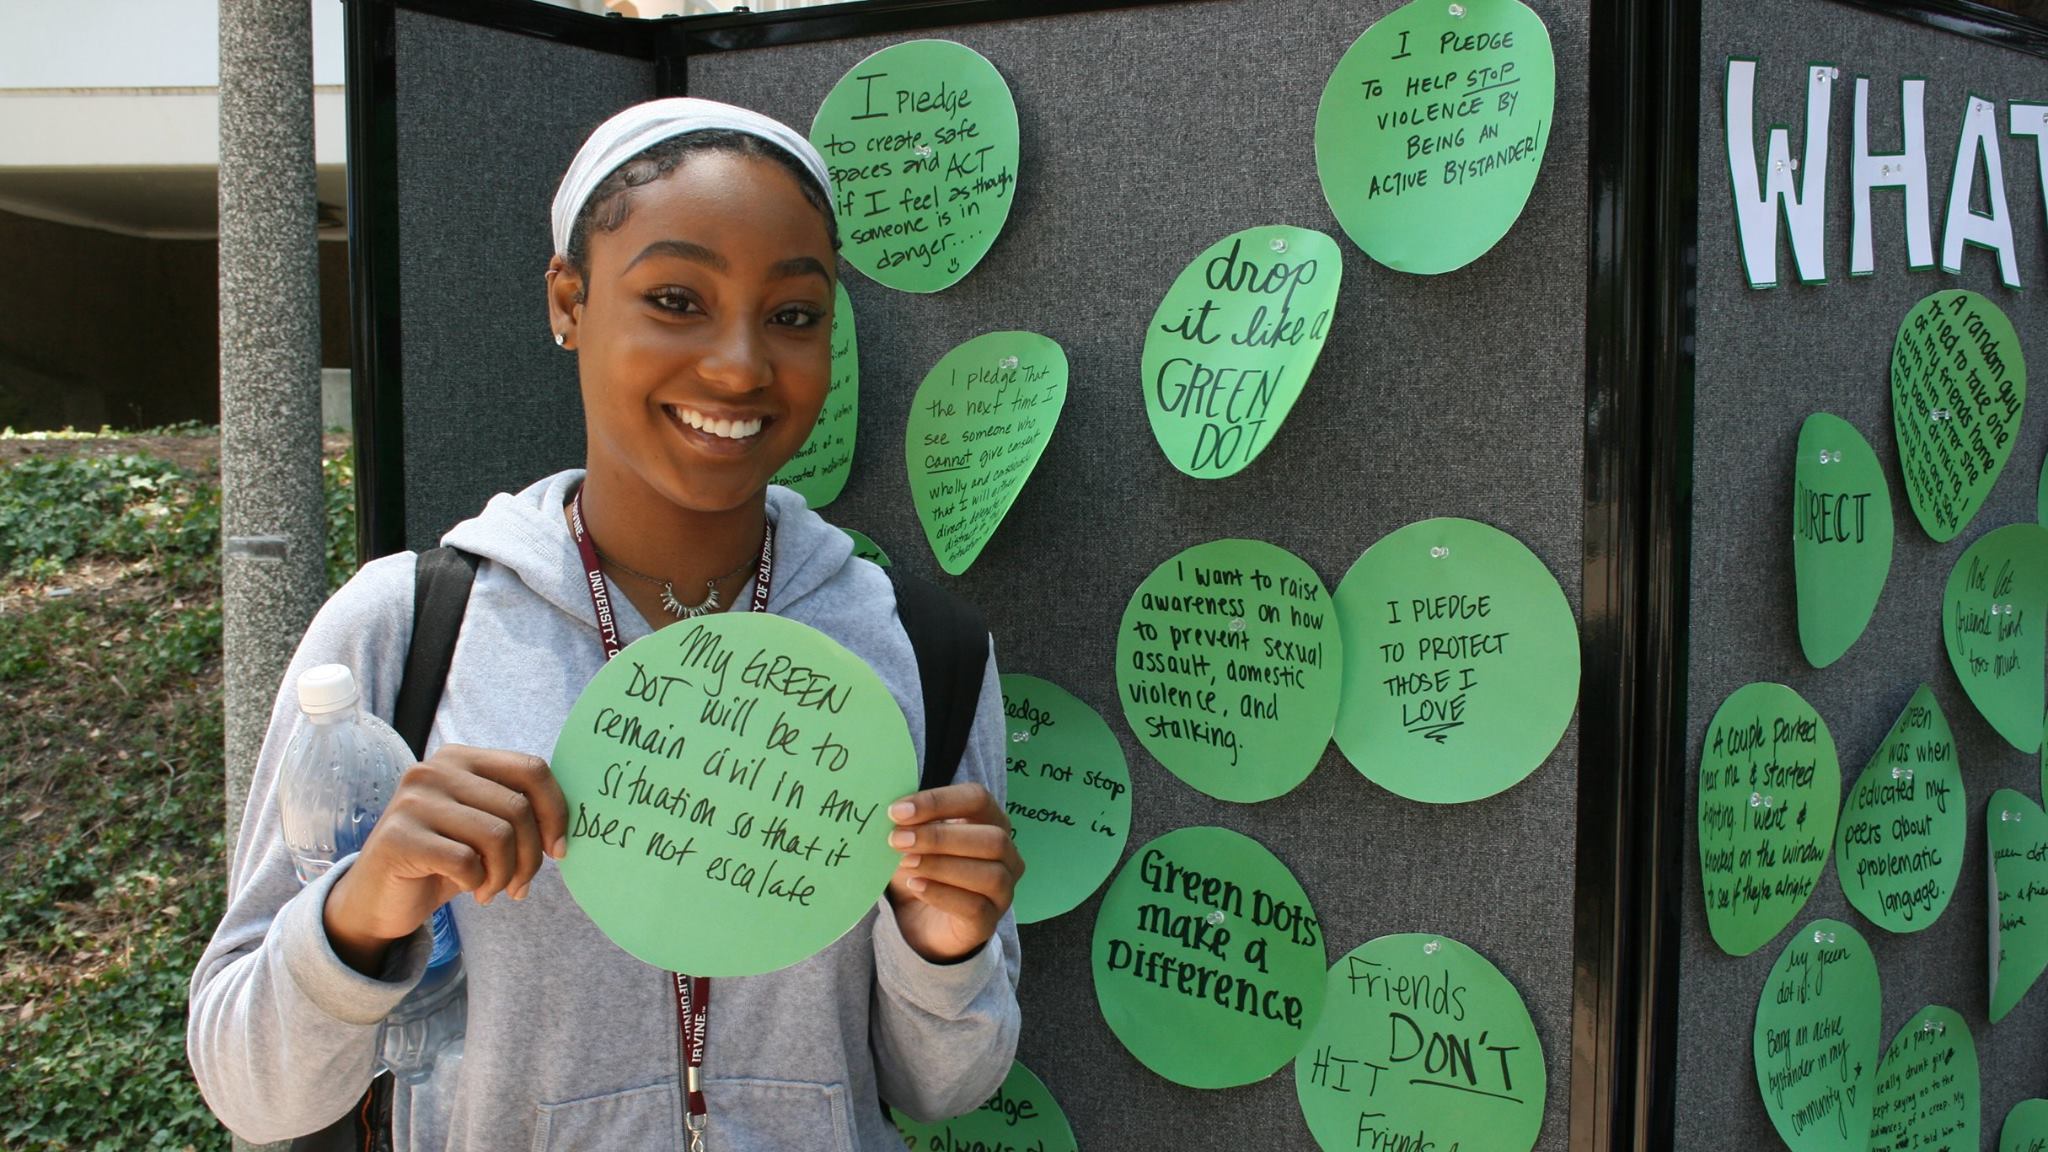 I Pledge
to create safe
spaces and ACT
if I feel as though
someone is in
danger....
I PLEDGE
TO HELP STOP
VIOLENCE BY
BEING AN
ACTIVE BYSTANDER!
WHAT
drop
it like a
GREEN
DOT
I pledge That
the next time I
see someone who
cannot give consent
wholly and
that I will either
direct,
A random guy
tried to take one
of my friends home
with him after she
had been drinking. I
told him no and said
I would take her
home.
DIRECT
Not let
friends drink
too much
I want to raise
awareness on how
to prevent sexual
assault, domestic
violence, and
stalking.
I PLEDGE
TO PROTECT
THOSE I
LOVE
UNIVERSITY OF CALIFORNIA
IRVINE
My GREEN
DOT will be to
remain civil in Any
situation so that it
Does not escalate
not stop
in
A couple parked
near me & started
fighting. I went &
knocked on the window
to see if they're alright.
was when
I educated my
peers about
problematic
language.
Green Dots
make a
Difference
Friends
DON'T
HIT
Friends
My green
dot is:
Being an active
bystander in my
community
At a party a
really drunk girl
kept saying no to the
advances of a creep. My
I told him to
always